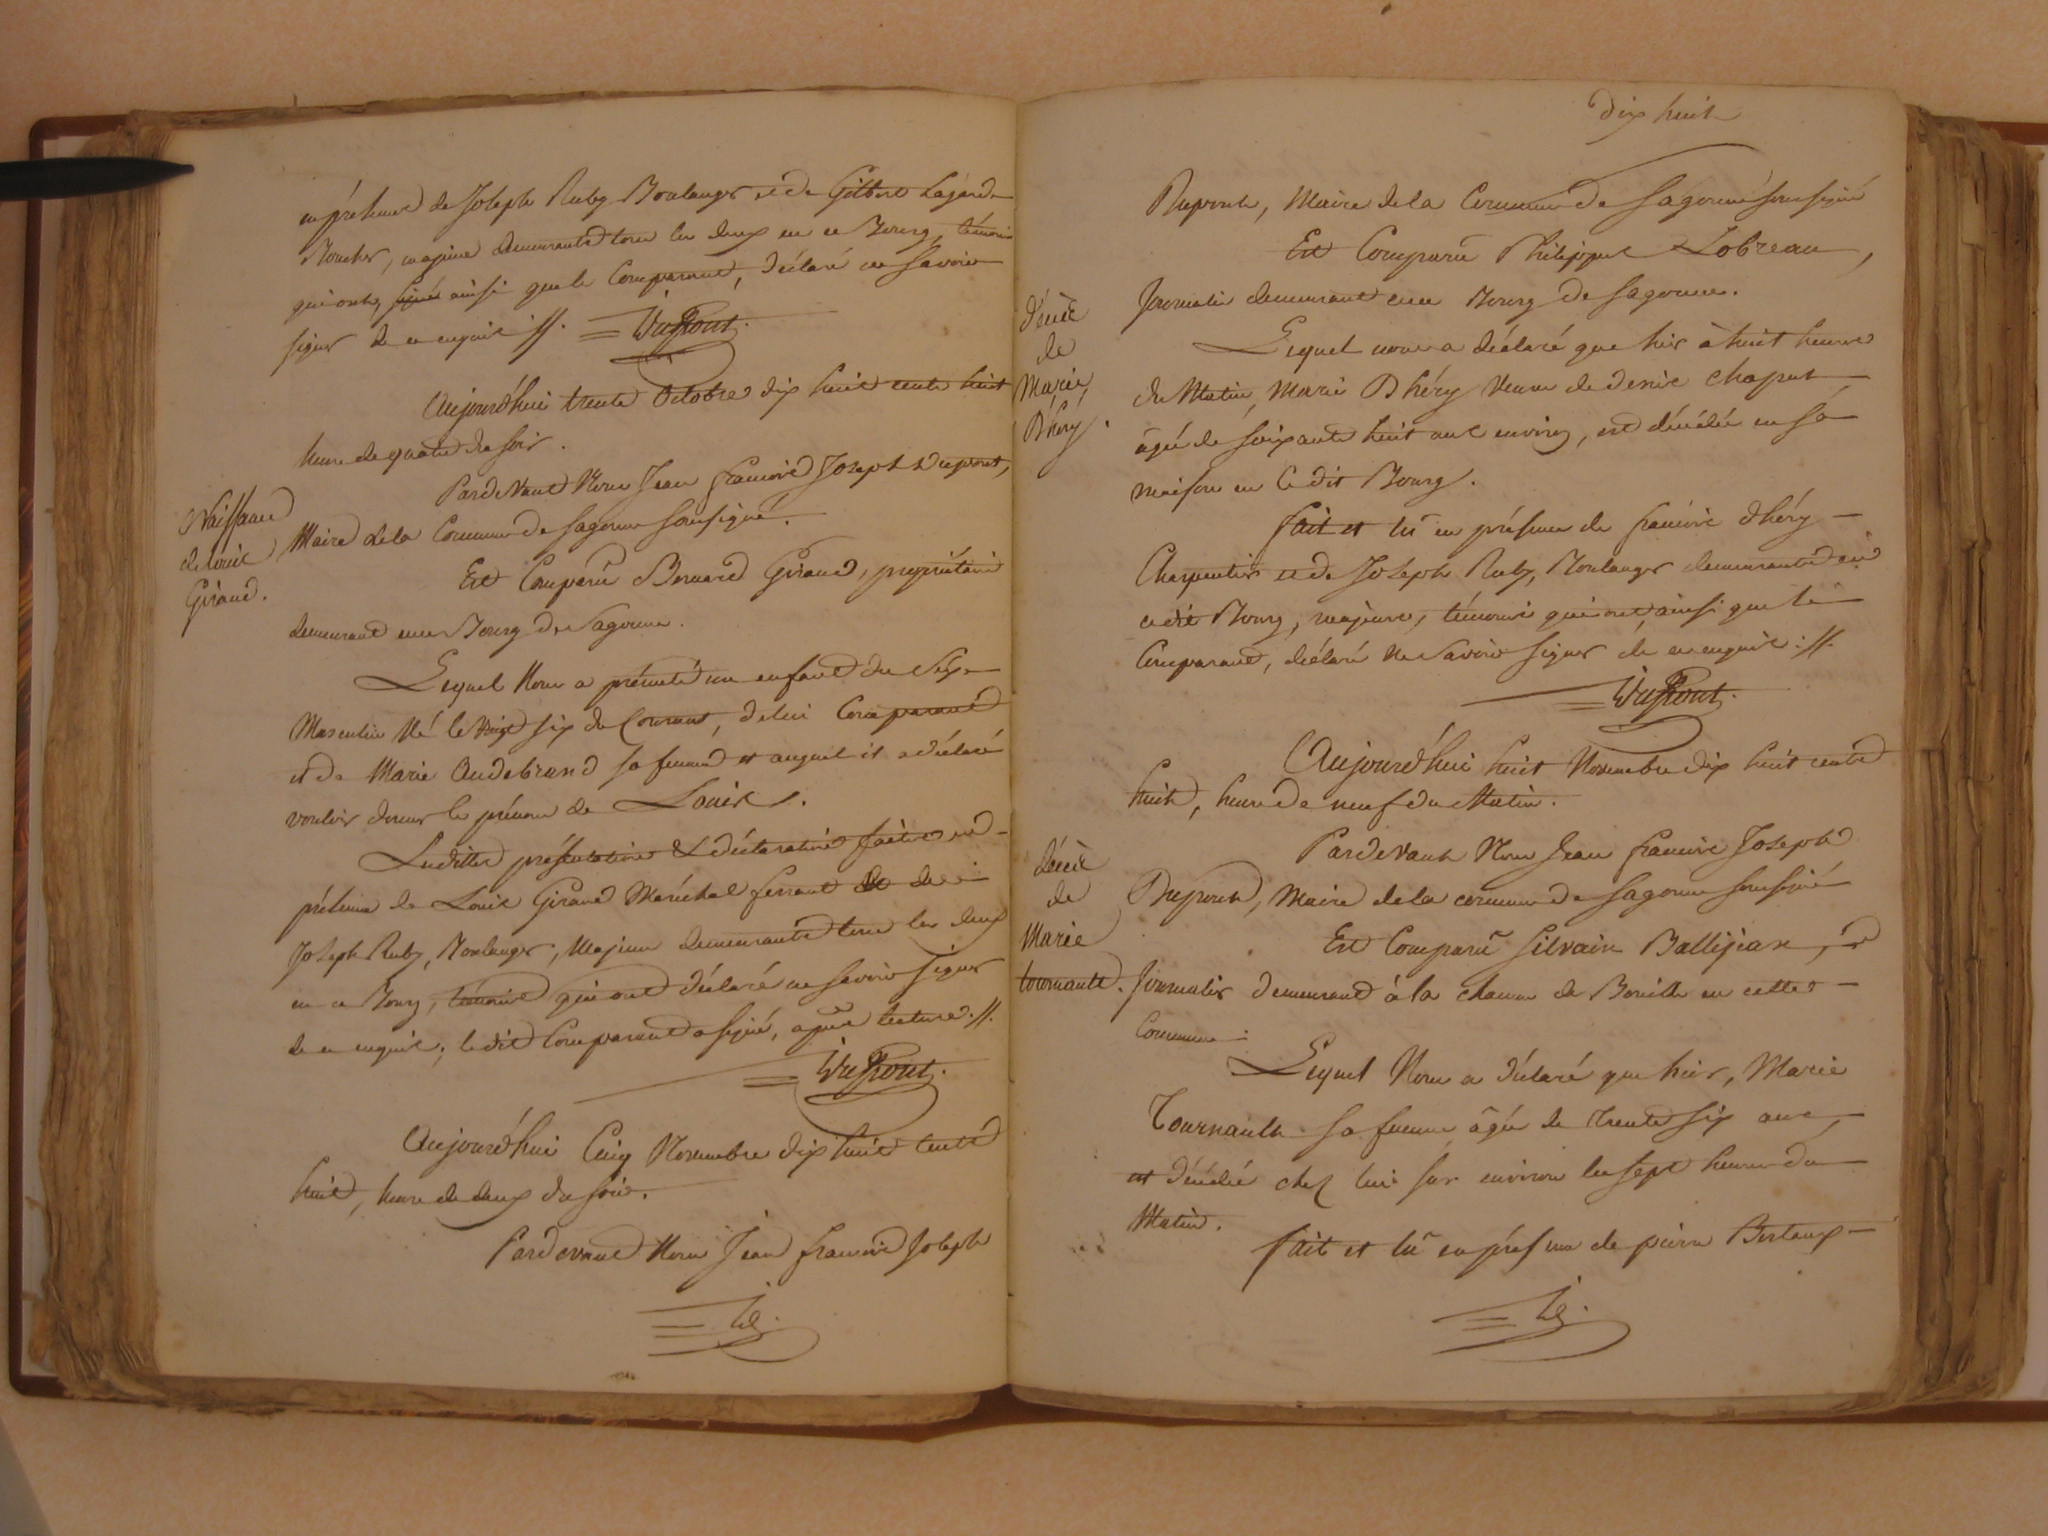 en présence de Joseph Ruby Boulanger et de Gilbert Lagarde
Boucher, majeurs demeurants tous les deux en ce Bourg, témoins
qui ont, signé ainsi que le Comparant, déclaré ne Savoir
signer de ce enquis //. Dupont.
Aujourd'hui trente Octobre dix huit cents huit
heure de quatre du soir.
Pardevant Nous Jean françois Joseph Dupont,
Maire de la Commune de Sagonne Soussigné.
Naissance
de Louis
Giraud.
Est Comparu Bernard Giraud, propriétaire
demeurant en ce Bourg de Sagonne.
Lequel Nous a présenté un enfant du Sexe
Masculin Né le vingt six du Courant, de lui Comparant
et de Marie Audebrand sa femme et auquel il a déclaré
vouloir donner le prénom de Louis.
Lesdittes présentations & déclarations faites en
présence de Louis Giraud Maréchal ferrant et de
Joseph Ruby, Boulanger, Majeurs demeurants tous les deux
en ce Bourg, témoins qui ont déclaré ne savoir signer
de ce enquis, le dit Comparant a signé, après lecture.//.
Dupont.
Aujourd'hui Cinq Novembre dix huit cents
huit, heure de deux du soir.
Pardevant Nous Jean françois Joseph
dix huit
Dupont, Maire de la Commune de Sagonne soussigné
Est Comparu Philippe Lobreau,
Journalier demeurant en ce Bourg de Sagonne.
décès
de
Marie
Dhéry.
Lequel nous a déclaré que hier à huit heures
du Matin, Marie Dhéry Veuve de denis Chaput
âgée de soixante huit ans environ, est décédée en sa
maison en Cedit Bourg.
fait et lu en présence de françois dhéry
Charpentier et de Joseph Ruby, Boulanger demeurants en
cedit Bourg, majeurs, témoins qui ont, ainsi que le
Comparant, déclaré Ne Savoir signer de ce enquis ://.
Dupont.
Aujourd'hui huit Novembre dix huit cents
huit, heure de neuf du Matin.
Pardevant Nous Jean françois Joseph
Dupont, Maire de la commune de Sagonne soussigné
décès
de
Marie
tournault.
Est Comparu Silvain Ballijean,
Journalier demeurant à la chaume de Bouille en cette
Commune.
Lequel Nous a déclaré que hier, Marie
Tournault sa femme âgée de trente six ans,
est décédée chez lui sur environ les sept heures du
Matin.
fait et lu en présence de pierre Bertaux